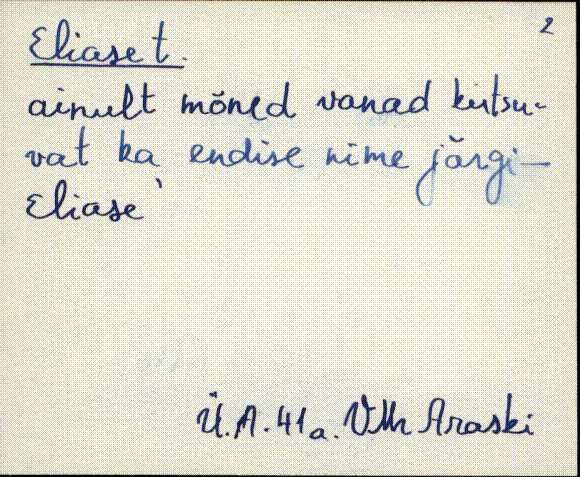 2
Eliase t.
ainult mõned vanad kutsu-
vat ka endise nime järgi —
Eliase`
Ü.A. 41a. VMr Araski